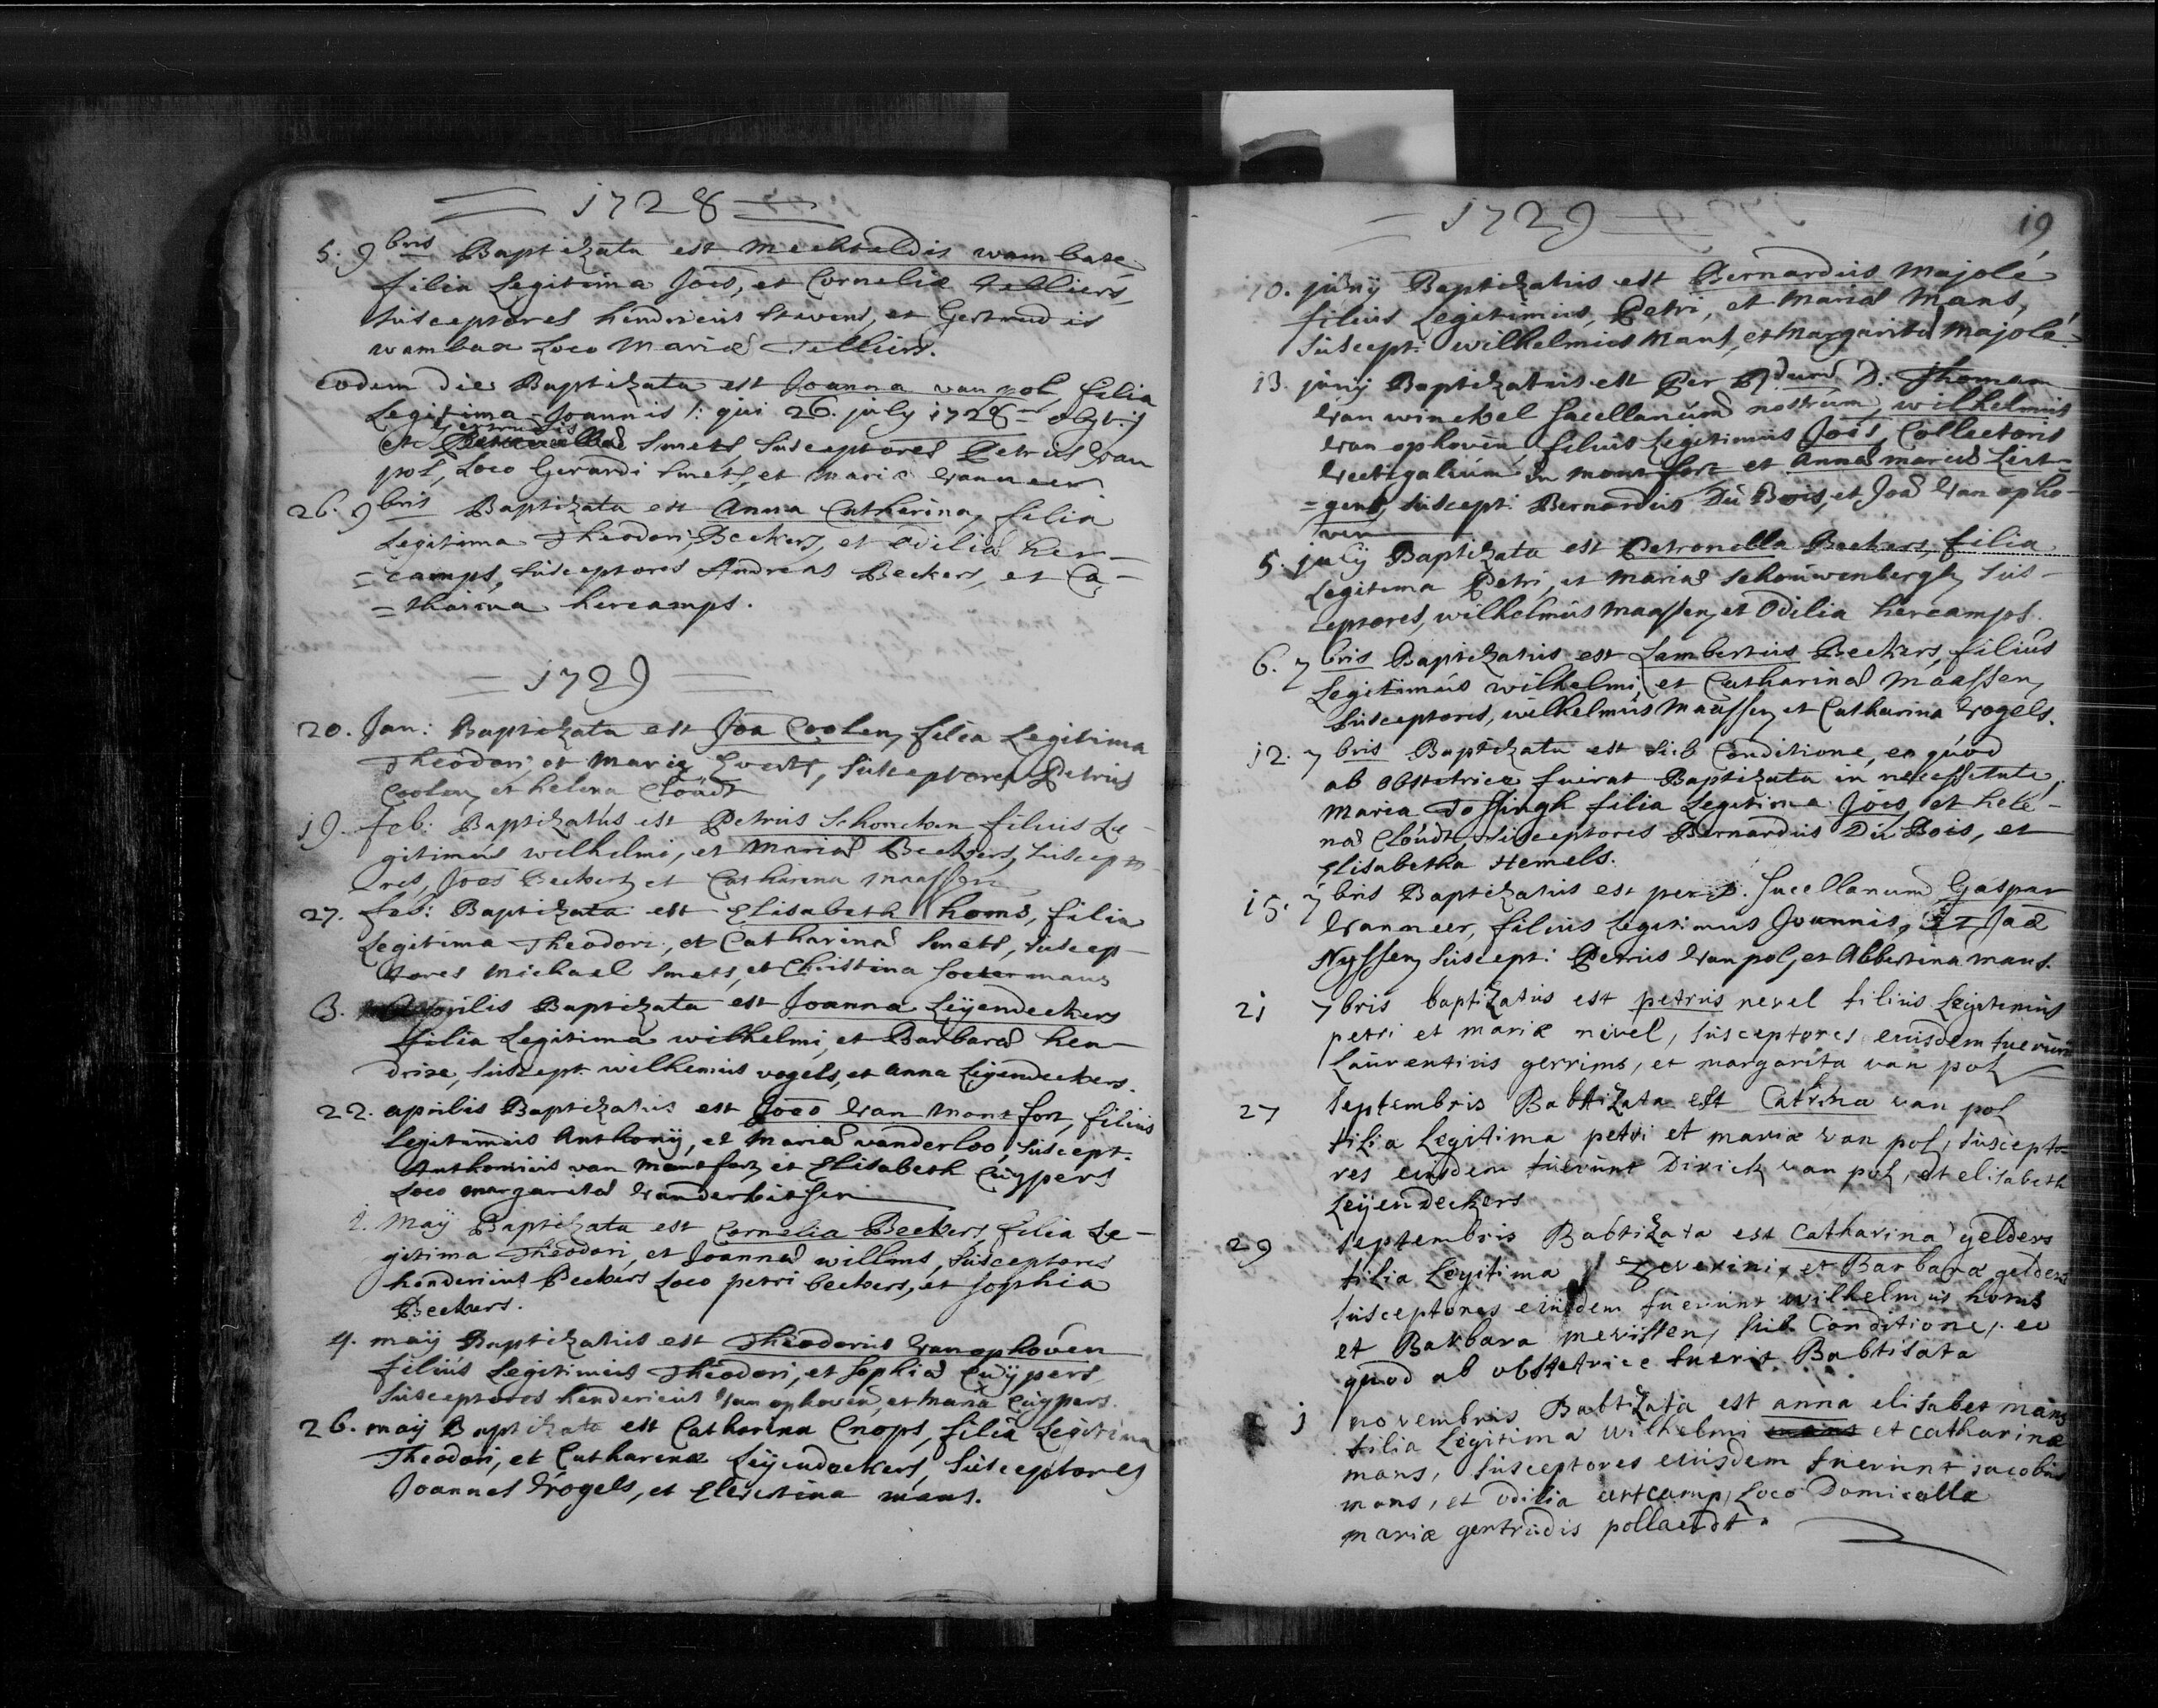 = 1728 =
5. 9bris Baptizata est Mechtildis wambaxe
filia Legitima Jois, et Corneliæ Telliers,
Susceptores hendricus Stevens, et Gertrudis
wambax Loco Mariæ Telliers.
eodem die Baptizata est Joanna van pol, filia
Legitima Joannis /: qui 26. july 1728 obyt :/
et Gertrudis Smets, Susceptores Petrus van
pol, Loco Gerardi Smets, et Maria van neer
26. 9bris Baptizata est Anna Catharina, filia
Legitima Theodori Beckers, et Odiliæ her-
=camps, Susceptores Andreas Beckers, et Ca-
=tharina hercamps.
= 1729 =
20. Jan: Baptizata est Joa Coolen, filia Legitima
Theodori, et Mariæ Everts, Susceptores Petrus
Coolen, et helena Cloudt
19. feb: Baptizatus est Petrus Schoncken filius Le-
gitimus wilhelmi, et Mariæ Beckers, Suscepto-
res, Joes Beckers, et Catharina Maassen
27. feb: Baptizata est Elisabeth homs, filia
Legitima Theodori, et Catharinæ Smets, Suscep-
tores Michael Smets, et Christina Soetermans
3. Aprilis Baptizata est Joanna Leÿendeckers
filia Legitima wilhelmi, et Barbaræ hen-
drixe, Suscept. wilhemus vogels, et anna Leÿendeckers.
22. aprilis Baptizatus est Joes van Montfort, filius
Legitimus Anthonÿ, et Mariæ vanderloo, Suscept.
Anthonius van Montfort, et Elisabeth Cuÿpers
Loco margaritæ
1. Maÿ Baptizata est Cornelia Beckers, filia Le-
gitima Theodori, et Joannæ willms, Susceptores
hendericus Beckers Loco petri beckers, et Sophia
Beckers.
4. maÿ Baptizatus est Theodorus van ophoven
filius Legitimus Theodori, et Sophiæ Cuÿpers
Susceptores hendericus van ophoven, et Maria Cuÿpers.
26. maÿ Baptizata est Catharina Cnops, filia Legitima
Theodori, et Catharinæ Leÿendeckers, Susceptores
Joannes Vogels, et Christina mans.
= 1729 =
19
10. junÿ Baptizatus est Bernardus Majolé
filius Legitimus, Petri, et Mariæ Mans,
Suscept: wilhelmus Mans, et Margarita Majolé.
13. junÿ Baptizatus est Per Rdum D. Thomam
van winckel Sacellanum nostrum, wilhelmus
van ophoven, filius Legitimus Jois, Collectoris
vectigalium in montfort et Annæ mariæ Leut-
=gens, Suscept: Bernardus Du Bois, et Joa van opho-
ven
5. julÿ Baptizata est Petronella Beckers, filia
Legitima Petri, et Mariæ Schouwenbergh, Sus-
ceptores, wilhelmus Maassen, et Odilia hercamps.
6. 7bris Baptizatus est Lambertus Beckers, filius
Legitimus wilhelmi, et Catharinæ Maassen,
Susceptores, wilhelmus Maassen, et Catharina Vogels.
12. 7bris Baptizata est Sub Conditione, eo quod
ab obstetrice fuerat Baptizata in necessitate,
Maria Tessingh filia Legitima Jois, et hele-
næ Cloudt, Susceptores Bernardus Du Bois, et
Elisabetha Hemels.
15. 7bris Baptizatus est per D. Sacellanum Gaspar
van neer, filius Legitimus Joannis, et Joæ
Nyssen, Suscept: Petrus van pol, et Albertina mans.
21 7bris baptizatus est petrus nevel filius Legitimus
petri et mariæ nevel, susceptores eiusdem fuerunt
Laurentius gerrims, et margarita van pol
27 Septembris Babtizata est Catrina van pol
filia Legitima petri et mariæ van pol, suscepto
res eiusdem fuerunt Dirick van pol, et elisabeth
Leÿendeckers
29 septembris Babtizata est Catharina gelders
filia Legitima Zeverini, et Barbara gelders
susceptores eiusdem fuerunt wilhelmus homs
et Barbara mevissen, sub Conditione, eo
quod ab obstetrice fuerit Babtisata
1 novembris Babtizata est anna elisabet mans
filia Legitima wilhelmi mans et catharinæ
mans, susceptores eiusdem fuerunt jacobus
mans, et odilia ertcamp, Loco Domicellæ
mariæ gertrudis pollaerdt.